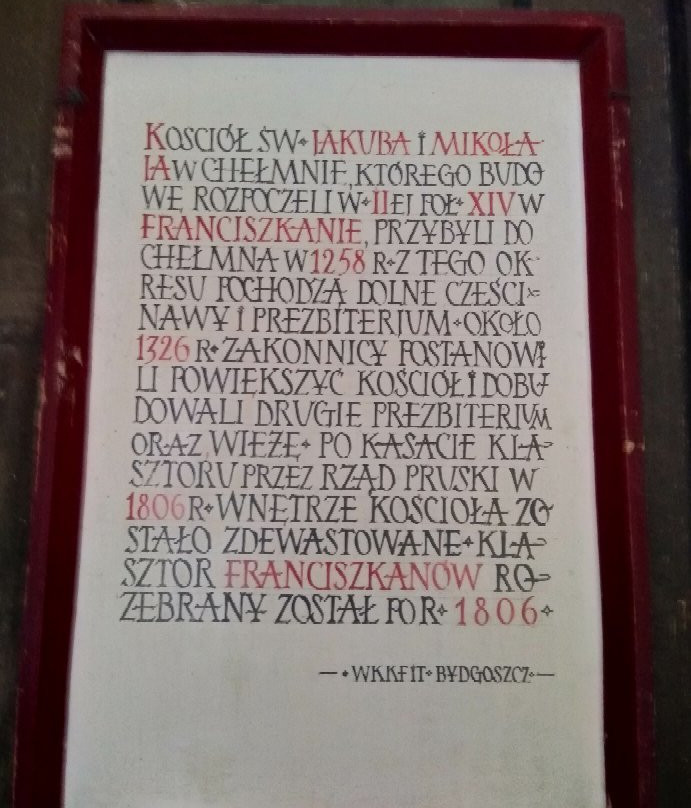 KOŚCIÓŁ ŚW. JAKUBA I MIKOŁA-
JA W CHEŁMNIE, KTÓREGO BUDO
WĘ ROZPOCZELI W II EJ POŁ. XIV W
FRANCISZKANIE, PRZYBYLI DO
CHEŁMNA W 1258 R. Z TEGO OK-
RESU POCHODZĄ DOLNE CZEŚCI
NAWY I PREZBITERIUM. OKOŁO
1326 R. ZAKONNICY POSTANOWI
LI POWIĘKSZYĆ KOŚCIÓŁ I DOBU
DOWALI DRUGIE PREZBITERIUM
ORAZ WIEŻĘ. PO KASACIE KLA-
SZTORU PRZEZ RZĄD PRUSKI W
1806 R. WNĘTRZE KOŚCIOŁA ZO
STAŁO ZDEWASTOWANE. KLA-
SZTOR FRANCISZKANÓW RO-
ZEBRANY ZOSTAŁ PO R. 1806.
— WKKFIT. BYDGOSZCZ. —